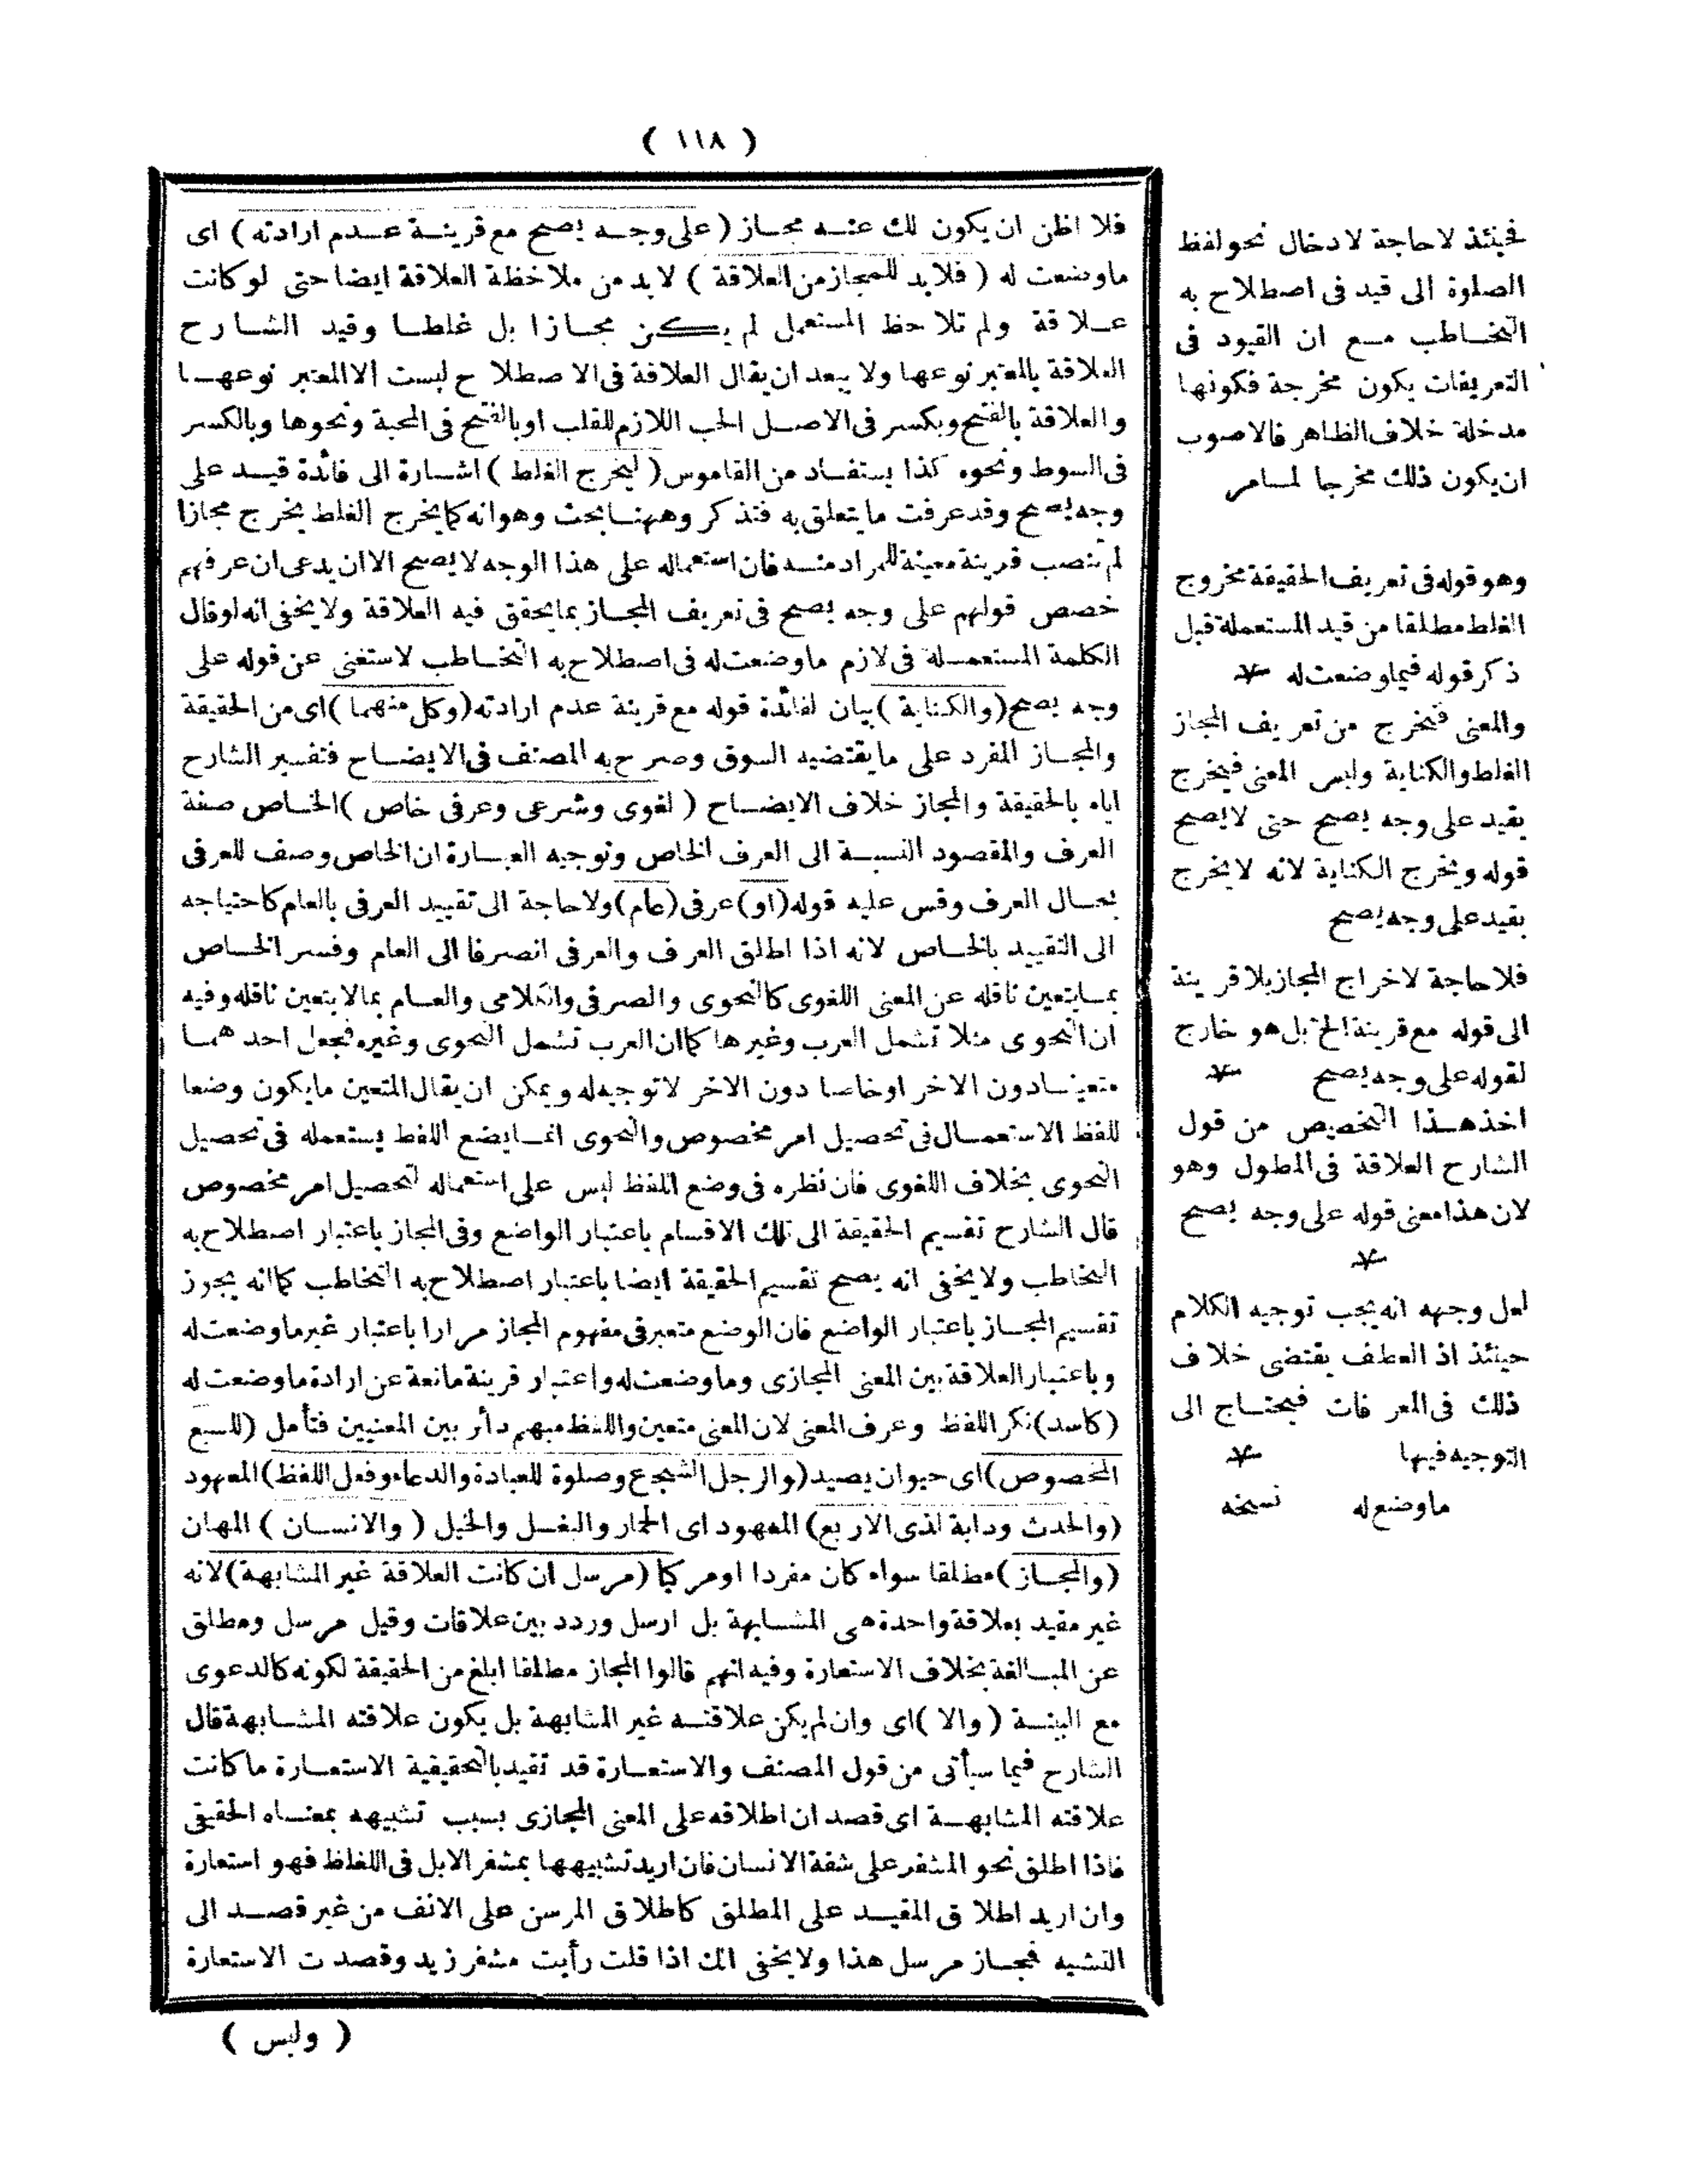 ( ١١٨ )
فلا اظن ان يكون لك عنه مجاز ( على وجه يصح مع قرينة عدم ارادته ) اى
ماوضعت له ( فلابد للمجاز من العلاقة ) لابد من ملاخظة العلاقة ايضا حتى لو كانت
علاقة ولم تلاحظ المستعمل لم يكن مجازا بل غلطا وقيد الشارح
العلاقة بالمعتبر نوعها ولا يبعد ان يقال العلاقة فى الاصطلاح ليست الا المعتبر نوعها
والعلاقة بالفتح وبكسر فى الاصل الحب اللازم للقلب او بالفتح فى المحبة ونحوها وبالكسر
فى السوط ونحوه كذا يستفاد من القاموس ( ليخرج الغلط ) اشارة الى فائدة قيد على
وجه يصح وقد عرفت ما يتعلق به فتذكر وههنا بحث وهو انه كما يخرج الغلط يخرج مجازا
لم تنصب قرينة معينة للمراد منه فان استعماله على هذا الوجه لا يصح الا ان يدعى ان عرفهم
خصص قولهم على وجه يصح فى تعريف المجاز بما يحقق فيه العلاقة ولا يخفى انه لو قال
الكلمة المستعملة فى لازم ماوضعت له فى اصطلاح به التخاطب لاستغنى عن قوله على
وجه يصح ( والكناية ) بيان لفائدة قوله مع قرينة عدم ارادته ( وكل منهما ) اى من الحقيقة
والمجاز المفرد على ما يقتضيه السوق وصرح به المصنف فى الايضاح فتفسير الشارح
اياه بالحقيقة والمجاز خلاف الايضاح ( لغوى وشرعى وعرفى خاص ) الخاص صفة
العرف والمقصود النسبة الى العرف الخاص وتوجيه العبارة ان الخاص وصف للعرفى
بحال العرف وقس عليه قوله ( او ) عرفى ( عام ) ولا حاجة الى تقييد العرفى بالعام كاحتياجه
الى التقييد بالخاص لانه اذا اطلق العرف والعرفى انصرفا الى العام وفسر الخاص
بما يتعين ناقله عن المعنى اللغوى كالنحوى والصرفى والكلامى والعام بما لا يتعين ناقله وفيه
ان النحوى مثلا تشمل العرب وغيرها كما ان العرب تشمل النحوى وغيره فجعل احدهما
متعينا دون الاخر او خاصا دون الاخر لا توجيه له ويمكن ان يقال المتعين ما يكون وضعا
للفظ الاستعمال فى تحصيل امر مخصوص والنحوى انما يضع اللفظ يستعمله فى تحصيل
النحوى بخلاف اللغوى فان نظره فى وضع اللفظ ليس على استعماله لتحصيل امر مخصوص
قال الشارح تقسيم الحقيقة الى تلك الاقسام باعتبار الواضع وفى المجاز باعتبار اصطلاح به
التخاطب ولا يخفى انه يصح تقسيم الحقيقة ايضا باعتبار اصطلاح به التخاطب كما انه يجوز
تقسيم المجاز باعتبار الواضع فان الوضع متعبر فى مفهوم المجاز مرارا باعتبار غير ماوضعت له
وباعتبار العلاقة بين المعنى المجازى وماوضعت له واعتبار قرينة مانعة عن ارادة ماوضعت له
( كاسد ) نكر اللفظ وعرف المعنى لان المعنى متعين واللفظ مبهم دائر بين المعنيين فتأمل ( للسبع
المخصوص ) اى حيوان يصيد ( والرجل الشجع وصلوة للعبادة والدعاء وفعل اللفظ ) المعهود
( والحدث ودابة لذى الاربع ) المعهود اى الحمار والبغل والخيل ( والانسان ) المهان
( والمجاز ) مطلقا سواء كان مفردا او مركبا ( مرسل ان كانت العلاقة غير المشابهة ) لانه
غير مقيد بعلاقة واحدة هى المشابهة بل ارسل وردد بين علاقات وقيل مرسل ومطلق
عن المبالغة بخلاف الاستعارة وفيه انهم قالوا المجاز مطلقا ابلغ من الحقيقة لكونه كالدعوى
مع البينة ( والا ) اى وان لم يكن علاقته غير المشابهة بل يكون علاقته المشابهة قال
الشارح فيما سيأتى من قول المصنف والاستعارة قد تقيد بالتحقيقية الاستعارة ما كانت
علاقته المشابهة اى قصد ان اطلاقه على المعنى المجازى بسبب تشبيهه بمعناه الحقيقى
فاذا اطلق نحو المشفر على شفة الانسان فان اريد تشبيهها بمشفر الابل فى الغلاظ فهو استعارة
وان اريد اطلاق المقيد على المطلق كاطلاق المرسن على الانف من غير قصد الى
التشبيه فمجاز مرسل هذا ولا يخفى انك اذا قلت رأيت مشفر زيد وقصدت الاستعارة
( وليس )
فحينئذ لا حاجة لادخال نحو لفظ
الصلوة الى قيد فى اصطلاح به
التخاطب مع ان القيود فى
التعريفات يكون مخرجة فكونها
مدخلة خلاف الظاهر فالاصوب
ان يكون ذلك مخرجا لما مر
وهو قوله فى تعريف الحقيقة مخروج
الغلط مطلقا من قيد المستعملة قبل
ذكر قوله فيما وضعت له
والمعنى فيخرج من تعريف المجاز
الغلط والكناية وليس المعنى فيخرج
بقيد على وجه يصح حتى لا يصح
قوله ويخرج الكناية لانه لا يخرج
بقيد على وجه يصح
فلا حاجة لاخراج المجاز بلا قرينة
الى قوله مع قرينة الخ بل هو خارج
لقوله على وجه يصح
اخذ هذا التخصيص من قول
الشارح العلاقة فى المطول وهو
لان هذا معنى قوله على وجه يصح
لعل وجهه انه يجب توجيه الكلام
حينئذ اذ العطف يقتضى خلاف
ذلك فى المعرفات فيحتاج الى
التوجيه فيها
ماوضع له نسخه